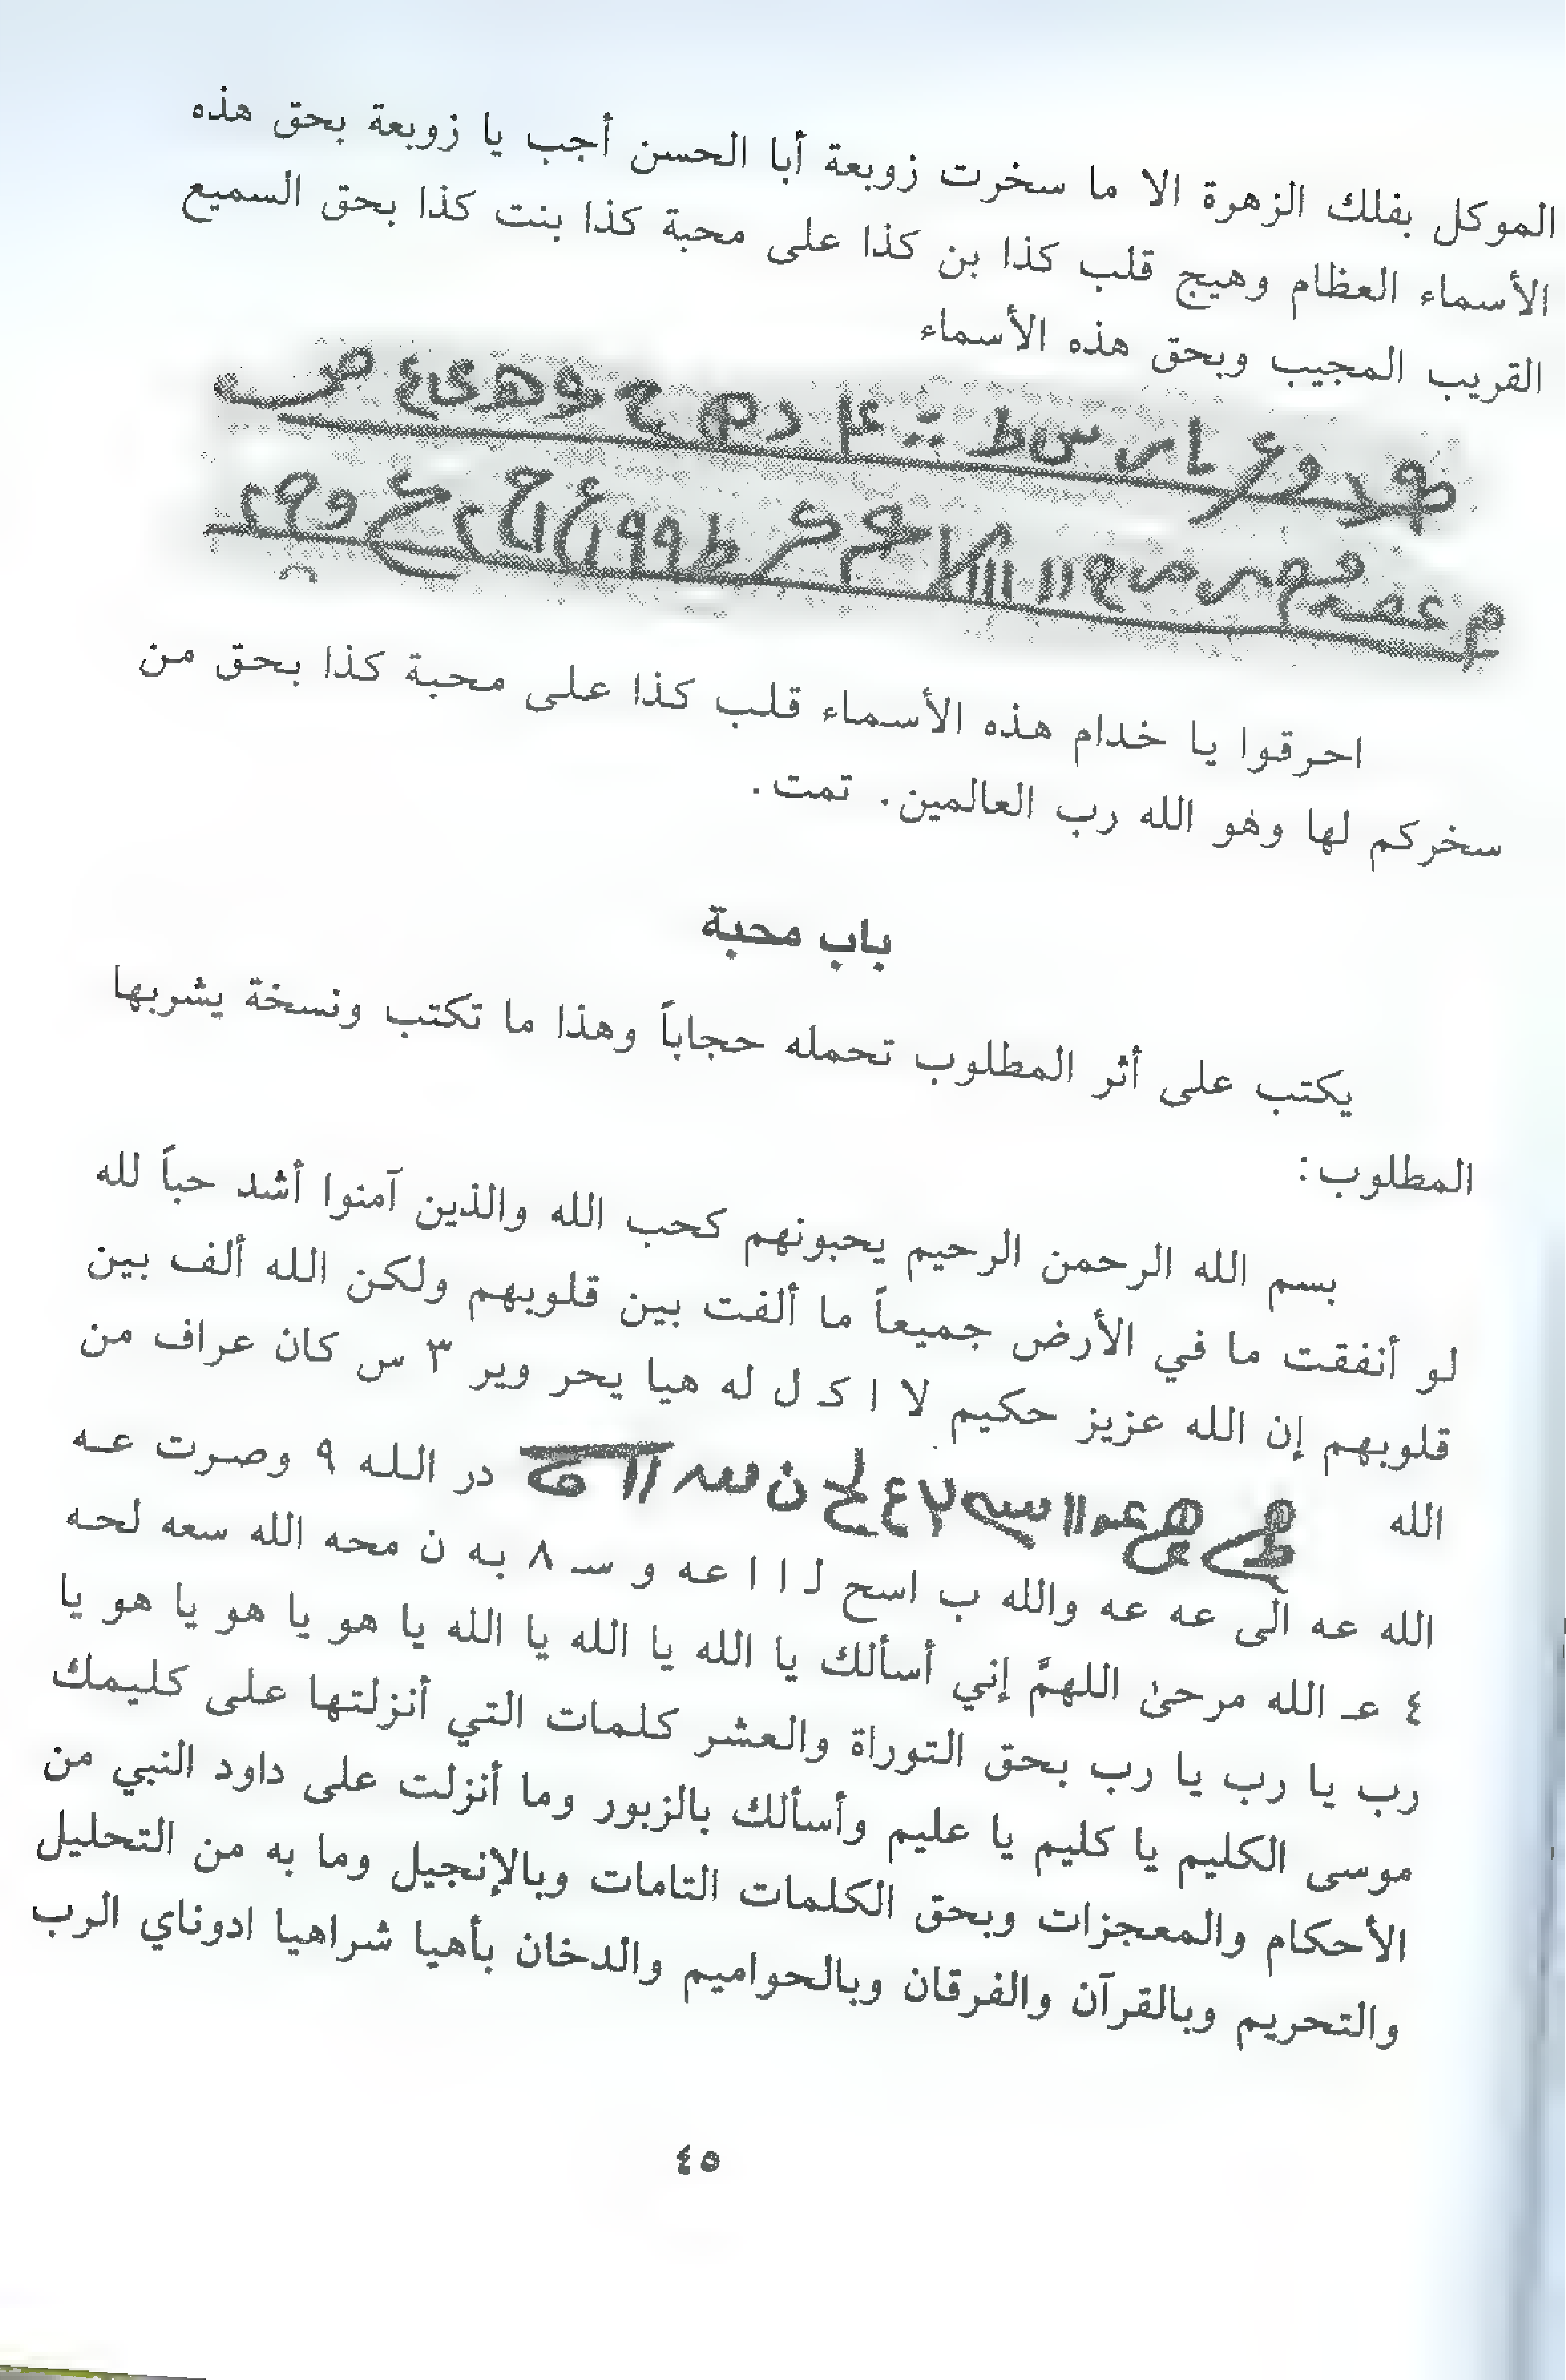 الموكل بفلك الزهرة الا ما سخرت زوبعة أبا الحسن أجب يا زوبعة بحق هذه
الأسماء العظام وهيج قلب كذا بن كذا على محبة كذا بنت كذا بحق السميع
القريب المجيب وبحق هذه الأسماء
احرقوا يا خدام هذه الأسماء قلب كذا على محبة كذا بحق من
سخركم لها وهو الله رب العالمين. تمت.
باب محبة
يكتب على أثر المطلوب تحمله حجاباً وهذا ما تكتب ونسخة يشربها
المطلوب:
بسم الله الرحمن الرحيم يحبونهم كحب الله والذين آمنوا أشد حباً لله
لو أنفقت ما في الأرض جميعاً ما ألفت بين قلوبهم ولكن الله ألف بين
قلوبهم إن الله عزيز حكيم لا ا كـ ل له هيا يحر وير ٣ س كان عراف من
الله در الله ٩ وصرت عه
الله عه آلى عه عه والله ب اسح لـ ا ا عه و سـ ٨ به ن محه الله سعه لحه
٤ عـ الله مرحىٰ اللهمَّ إني أسألك يا الله يا الله يا الله يا هو يا هو يا هو يا
رب يا رب يا رب بحق التوراة والعشر كلمات التي أنزلتها على كليمك
موسى الكليم يا كليم يا عليم وأسألك بالزبور وما أنزلت على داود النبي من
الأحكام والمعجزات وبحق الكلمات التامات وبالإنجيل وما به من التحليل
والتحريم وبالقرآن والفرقان وبالحواميم والدخان بأهيا شراهيا ادوناي الرب
٤٥